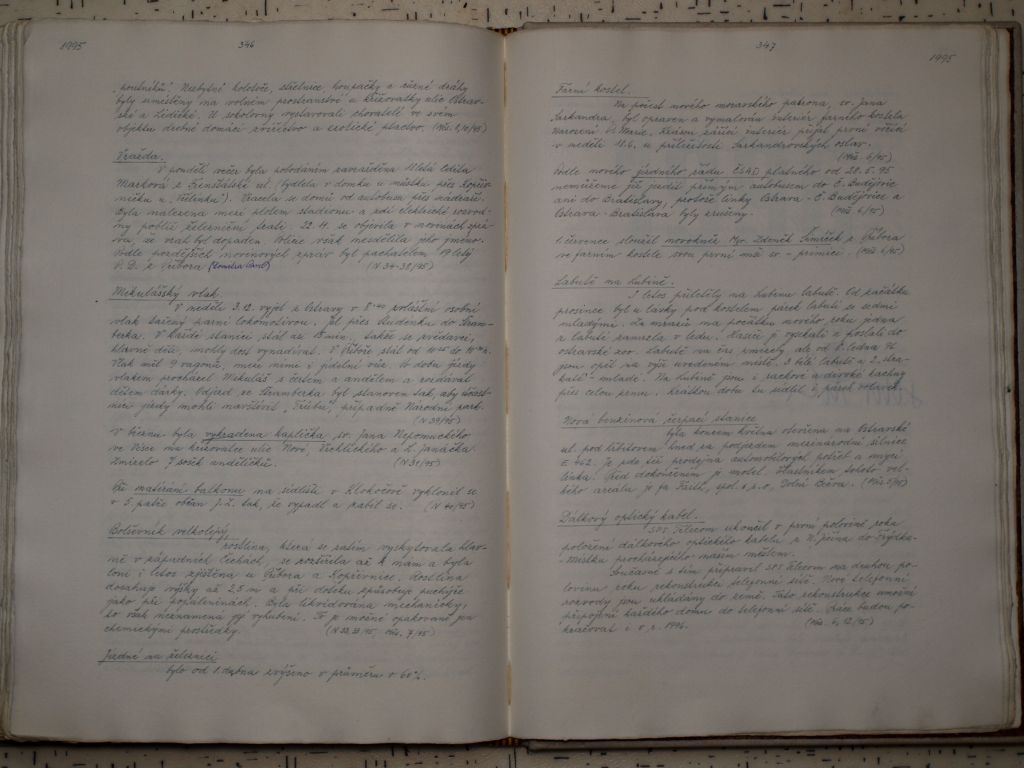 1995
346
poutníků. Nezbytné kolotoče, střelnice, houpačky a různé dráhy
byly umístěny na volném prostranství u křižovatky ulic Ostrav-
ské a Lidické. U sokolovny vystavovali chovatelé ve svém
objektu drobné domácí zvířectvo a exotické ptactvo. (Měs. 8,10/95)
Vražda.
V pondělí večer byla pobodáním zavražděna letitá
Marková z Frenštátské ul. (bydlela v domku u můstku přes Kopřiv-
ničku u ). Vracela se domů od autobusu přes nádraží.
Byla nalezena mezi plotem stadionu a zdí elektrické rozvod-
ny poblíž železniční trati. 22.4. se objevila v novinách zprá-
va, že vrah byl dopaden. Policie však nesdělila jeho jméno.
Podle pozdějších novinových zpráv byl pachatelem 19letý
V. D. z Příbora (N 34-38/95)
Mikulášský vlak
V neděli 3.12. vyjel z Ostravy v 8 zvláštní osobní
vlak tažený parní lokomotivou. Jel přes Studénku do Štram-
berka. V každé stanici stál asi 15 min., takže se zvědavci,
hlavně děti, mohly dost vynadívat. V Příboře stál od
Vlak měl 9 vagonů, mezi nimi i jídelní vůz. V době jízdy
vlakem procházel Mikuláš s čertem a andělem a rozdával
dětem dárky. Odjezd ze Štramberka byl stanoven tak, aby účast-
níci jízdy mohli navštívit Trúbu, případně Národní park.
(N 39/95)
V březnu byla vykradena kaplička sv. Jana Nepomuckého
ve Vesce na křižovatce ulic Nové, Vrchlického a L. Janáčka.
Zmizelo 7 sošek andělíčků. (N 31/95)
Při natírání balkonu na sídlišti v Klokočově vyklonil se
v 5. patře občan J. Z. tak, že vypadl a zabil se. (N 40/95)
Bolševník velkolepý,
rostlina, která se zatím vyskytovala hlav-
ně v západních Čechách, se rozšířila až k nám a byla
loni i letos zjištěna u Příbora a Kopřivnice. Rostlina
dosahuje výšky až 2,5 m a při doteku způsobuje puchýře
jako při popáleninách. Byla likvidována mechanicky,
to však neznamená její vyhubení. To je možné opakovaně jen
chemickými prostředky. (N 32, 33/95, Měs. 7/95)
Jízdné na železnici
bylo od 1. dubna zvýšeno v průměru o 60 %.
347
1995
Farní kostel.
Na počest nového moravského patrona, sv. Jana
Sarkandra, byl opraven a vymalován interiér farního kostela
Narození P. Marie. Krásou zářící interiér přijal první věřící
v neděli 11.6. u příležitosti Sarkandrovských oslav.
(Měs. 6/95)
Podle nového jízdního řádu ČSAD platného od 28.5.95
nemůžeme již jezdit přímým autobusem do Č. Budějovic
ani do Bratislavy, protože linky Ostrava - Č. Budějovice a
Ostrava - Bratislava byly zrušeny. (Měs. 6/95)
1. července sloužil novokněz Mgr. Zdeněk Šimíček z Příbora
ve farním kostele svou první mši sv. - primici. (Měs. 6/95)
Labutě na Lubině.
I letos přiletěly na Lubinu labutě. Od začátku
prosince byl u lávky pod kostelem párek labutí se sedmi
mladými. Za mrazů na počátku nového roku jedna
z labutí zamrzla v ledu. Hasiči ji vysekali a poslali do
ostravské zoo. Labutě na čas zmizely, ale od 8. ledna 96
jsou opět na výše uvedeném místě. 3 bílé labutě a 2 stra-
katé - mladé. Na Lubině jsou i rackové a divoké kachny
přes celou zimu. Krátkou dobu tu sídlil i párek volavek.
Nová benzinová čerpací stanice
byla koncem května otevřena na Ostravské
ul. pod hřbitovem hned za podjezdem mezinárodní silnice
E 462. Je zde též prodejna automobilových potřeb a mycí
linka. Před dokončením je motel. Vlastníkem tohoto vel-
kého areálu je fa spol. s r.o., Dolní Bečva. (Měs 5/95)
Dálkový optický kabel.
SPT Telecom ukončil v první polovině roku
položení dálkového optického kabelu z N. Jičína do Frýdku-
-Místku procházejícího naším městem.
Současně s tím připravil SPT Telecom na druhou po-
lovinu roku rekonstrukci telefonní sítě. Nové telefonní
rozvody jsou ukládány do země. Tato rekonstrukce umožní
připojení každého domu do telefonní sítě. Práce budou po-
kračovat i v r. 1996. (Měs. 6, 12/95)